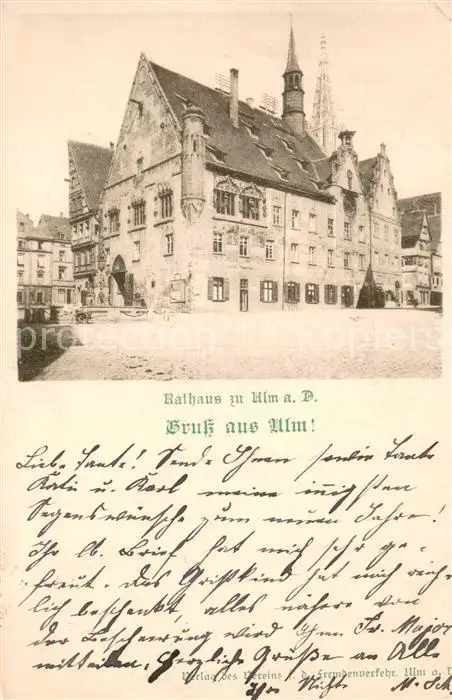 Rathaus zu Ulm a. D.
Gruß aus Ulm!
Liebe Tante! Sende Ihnen sowie Tante
Kati u. Karl meine innigsten
Segenswünsche zum neuen Jahre!
Ihr lb. Brief hat mich sehr ge-
freut. Das Christkind hat mich reich-
lich beschenkt, alles nähere von
der Bescheerung wird Ihnen Fr. Major
mitteilen, Herzliche Grüße an Alle
Verlag des Vereins f. d. Fremdenverkehr. Ulm a. D.
Ihre Nichte M. Sch.